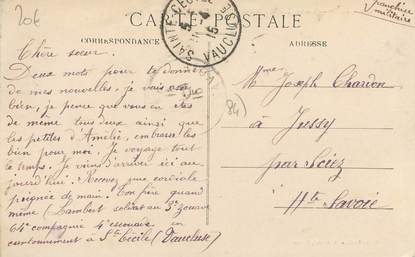 20€
franchise
militaire
CARTE POSTALE
CORRESPONDANCE
ADRESSE
SAINTE CECILE
VAUCLUSE
5
5 -4
15
Chère sœur
Deux mots pour te donner
de mes nouvelles, je vais
bien, je pense que vous en êtes
de même tous deux ainsi que
les petites d'Amélie, embrasse les
bien pour moi. Je voyage tout
le temps. Je viens d'arriver ici au
jourd'hui. Recevez une cordiale
poignée de main. Ton frère quand
même (Lambert soldat au 3e zouave
64e compagnie 4e escouade. en
cantonnement à Ste Cécile (Vaucluse)
84
Mme Joseph Chardon
à Jussy
par Sciez
Hte Savoie